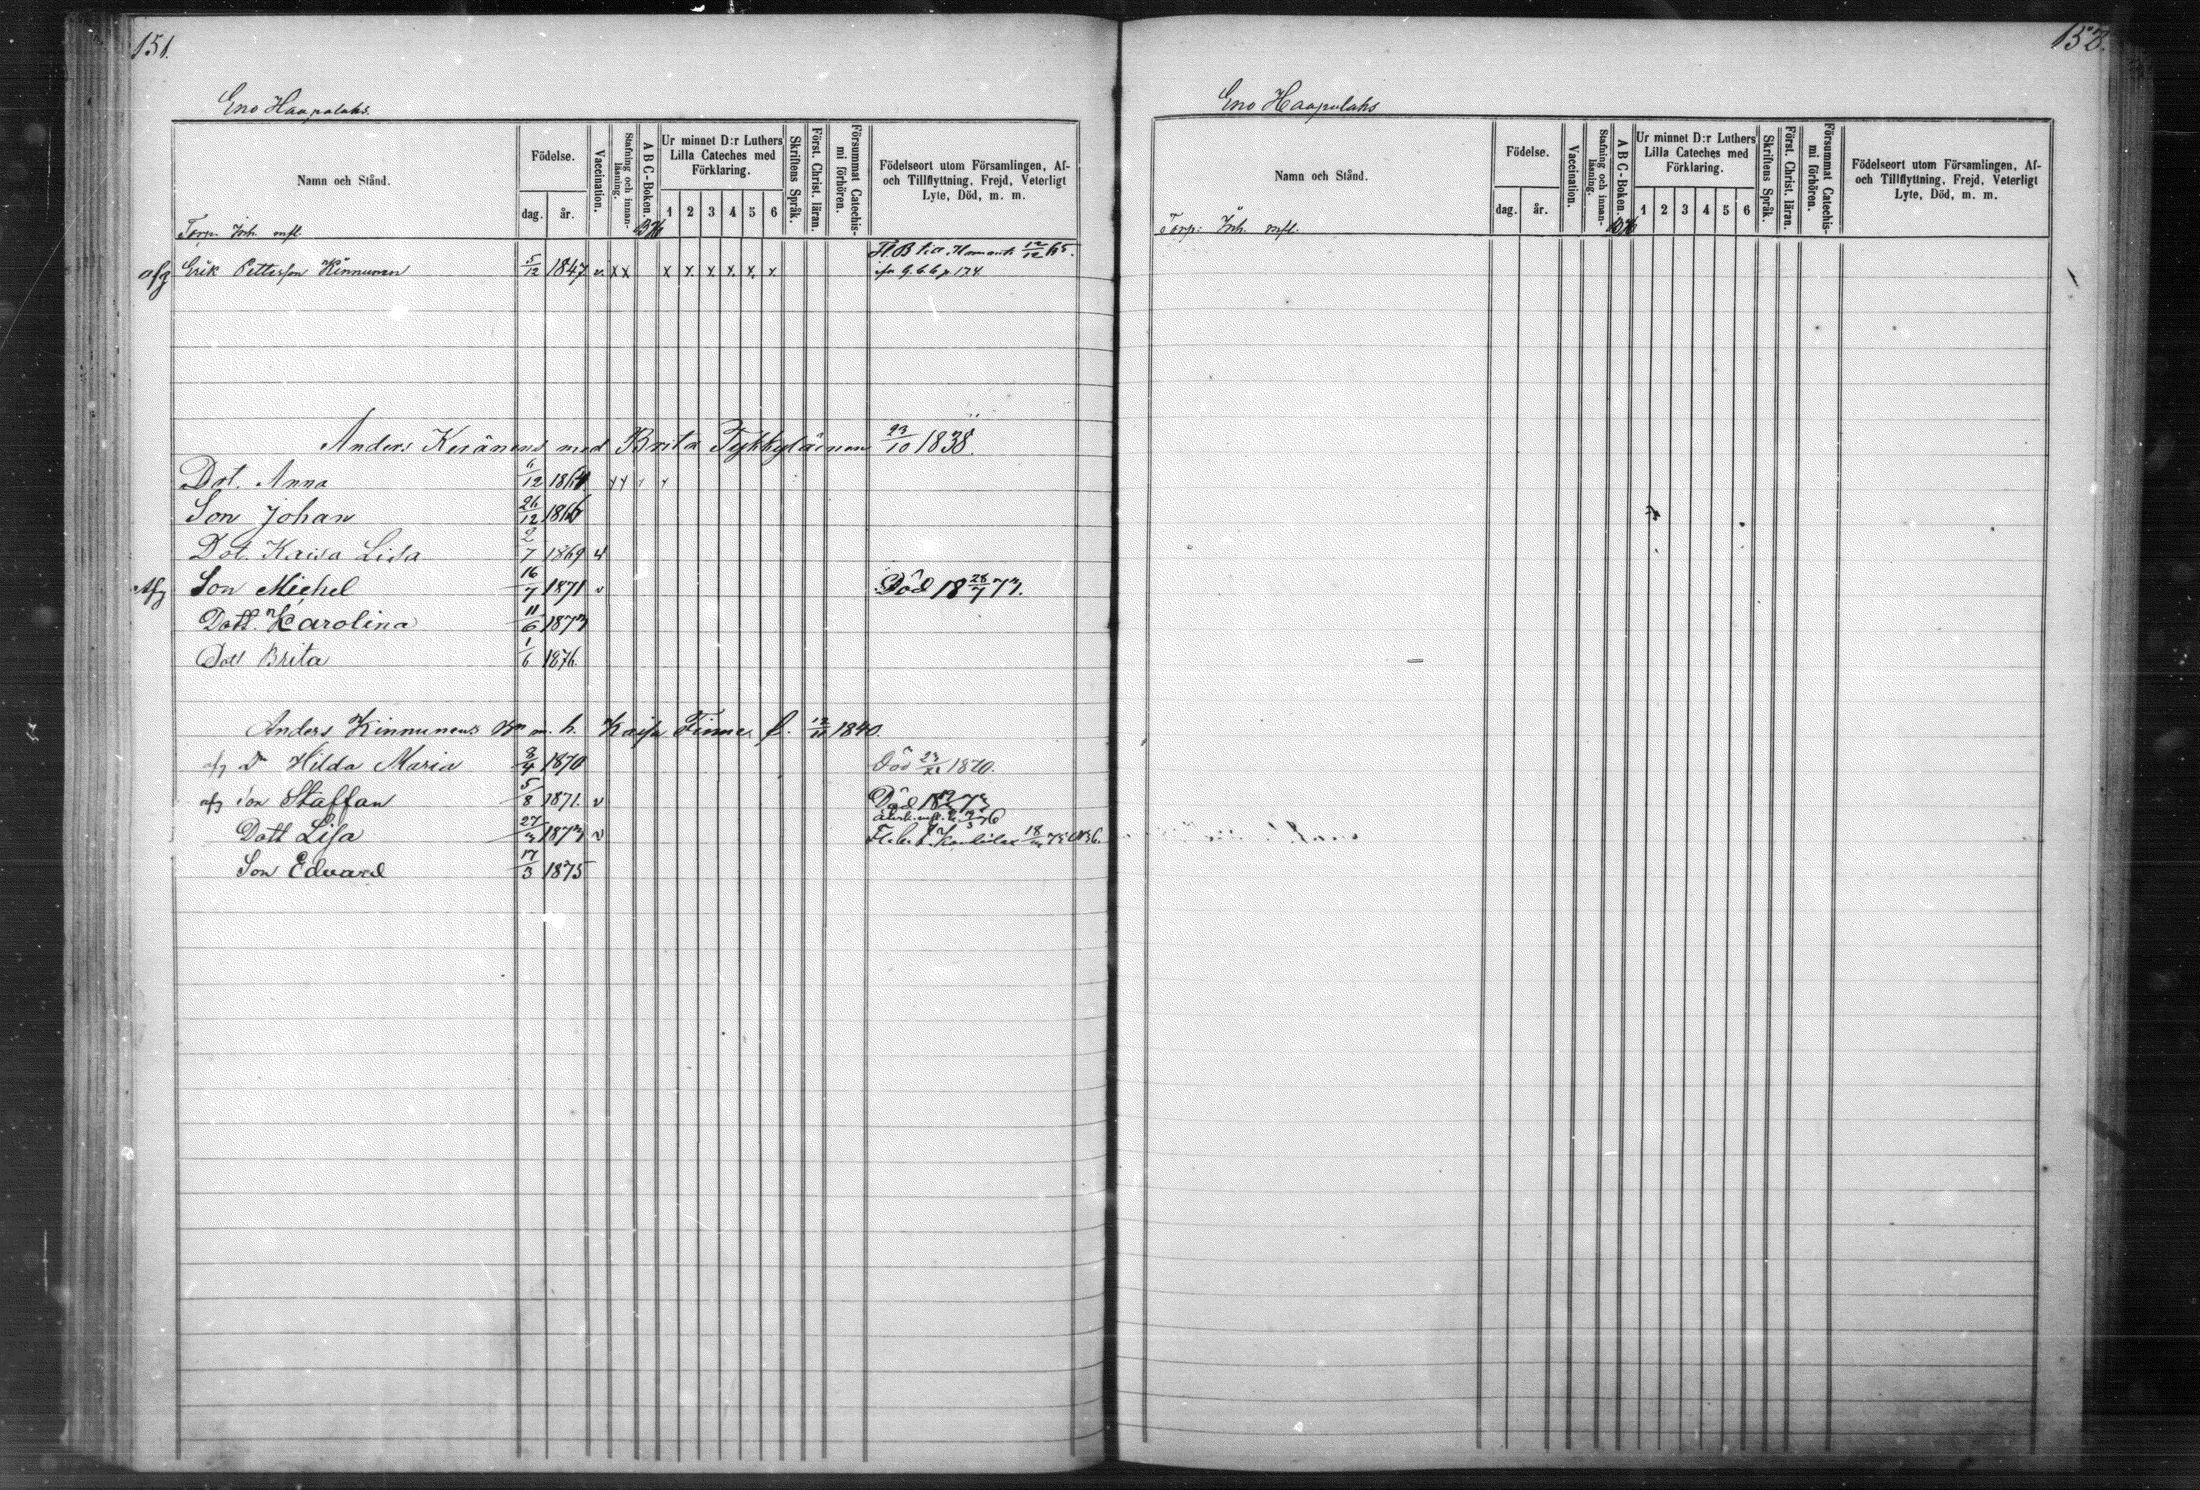 151.
Eno Haapalaks.
Namn och Stånd.
Födelse.
dag.
år.
Vaccination.
Stafning och innanläsning.
ABC-Boken.
Ur minnet D:r Luthers Lilla Cateches med Förklaring.
1 2 3 4 5 6
Skriftens Språk.
Först. Christ. läran.
Försummat Catechismi förhören.
Födelseort utom Församlingen, Af- och Tillflyttning, Frejd, Veterligt Lyte, Död, m. m.
Torp. Inh. mfl.
afg Erik Petterson Kinnunen 5/12 1847 v x x x x x x x x
12/12 65.
p 174
Anders Keränens med Brita Tykkyläinen 23/10 1838.
Dot. Anna 6/12 1864
Son Johan 26/12 1866
Dot. Kaisa Lisa 2/7 1869
Afg Son Michel 16/7 1871 v Död 18 28/7 73.
Dott. Karolina 11/6 1873
Dott Brita 1/6 1876.
Anders Kinnunens m. h. Kaisa Finne f. 12/11 1840.
afg Dr Hilda Maria 8/4 1870 Död 23/11 1870.
afg Son Staffan 5/8 1871. v Död 18 73
Dott Lisa 27/3 1873 v
Son Edvard 17/3 1875
152.
Eno Haapalaks
Namn och Stånd.
Födelse.
dag.
år.
Vaccination.
Stafning och innanläsning.
ABC-Boken.
Ur minnet D:r Luthers Lilla Cateches med Förklaring.
1 2 3 4 5 6
Skriftens Språk.
Först. Christ. läran.
Försummat Catechismi förhören.
Födelseort utom Församlingen, Af- och Tillflyttning, Frejd, Veterligt Lyte, Död, m. m.
Torp: Inh. mfl.